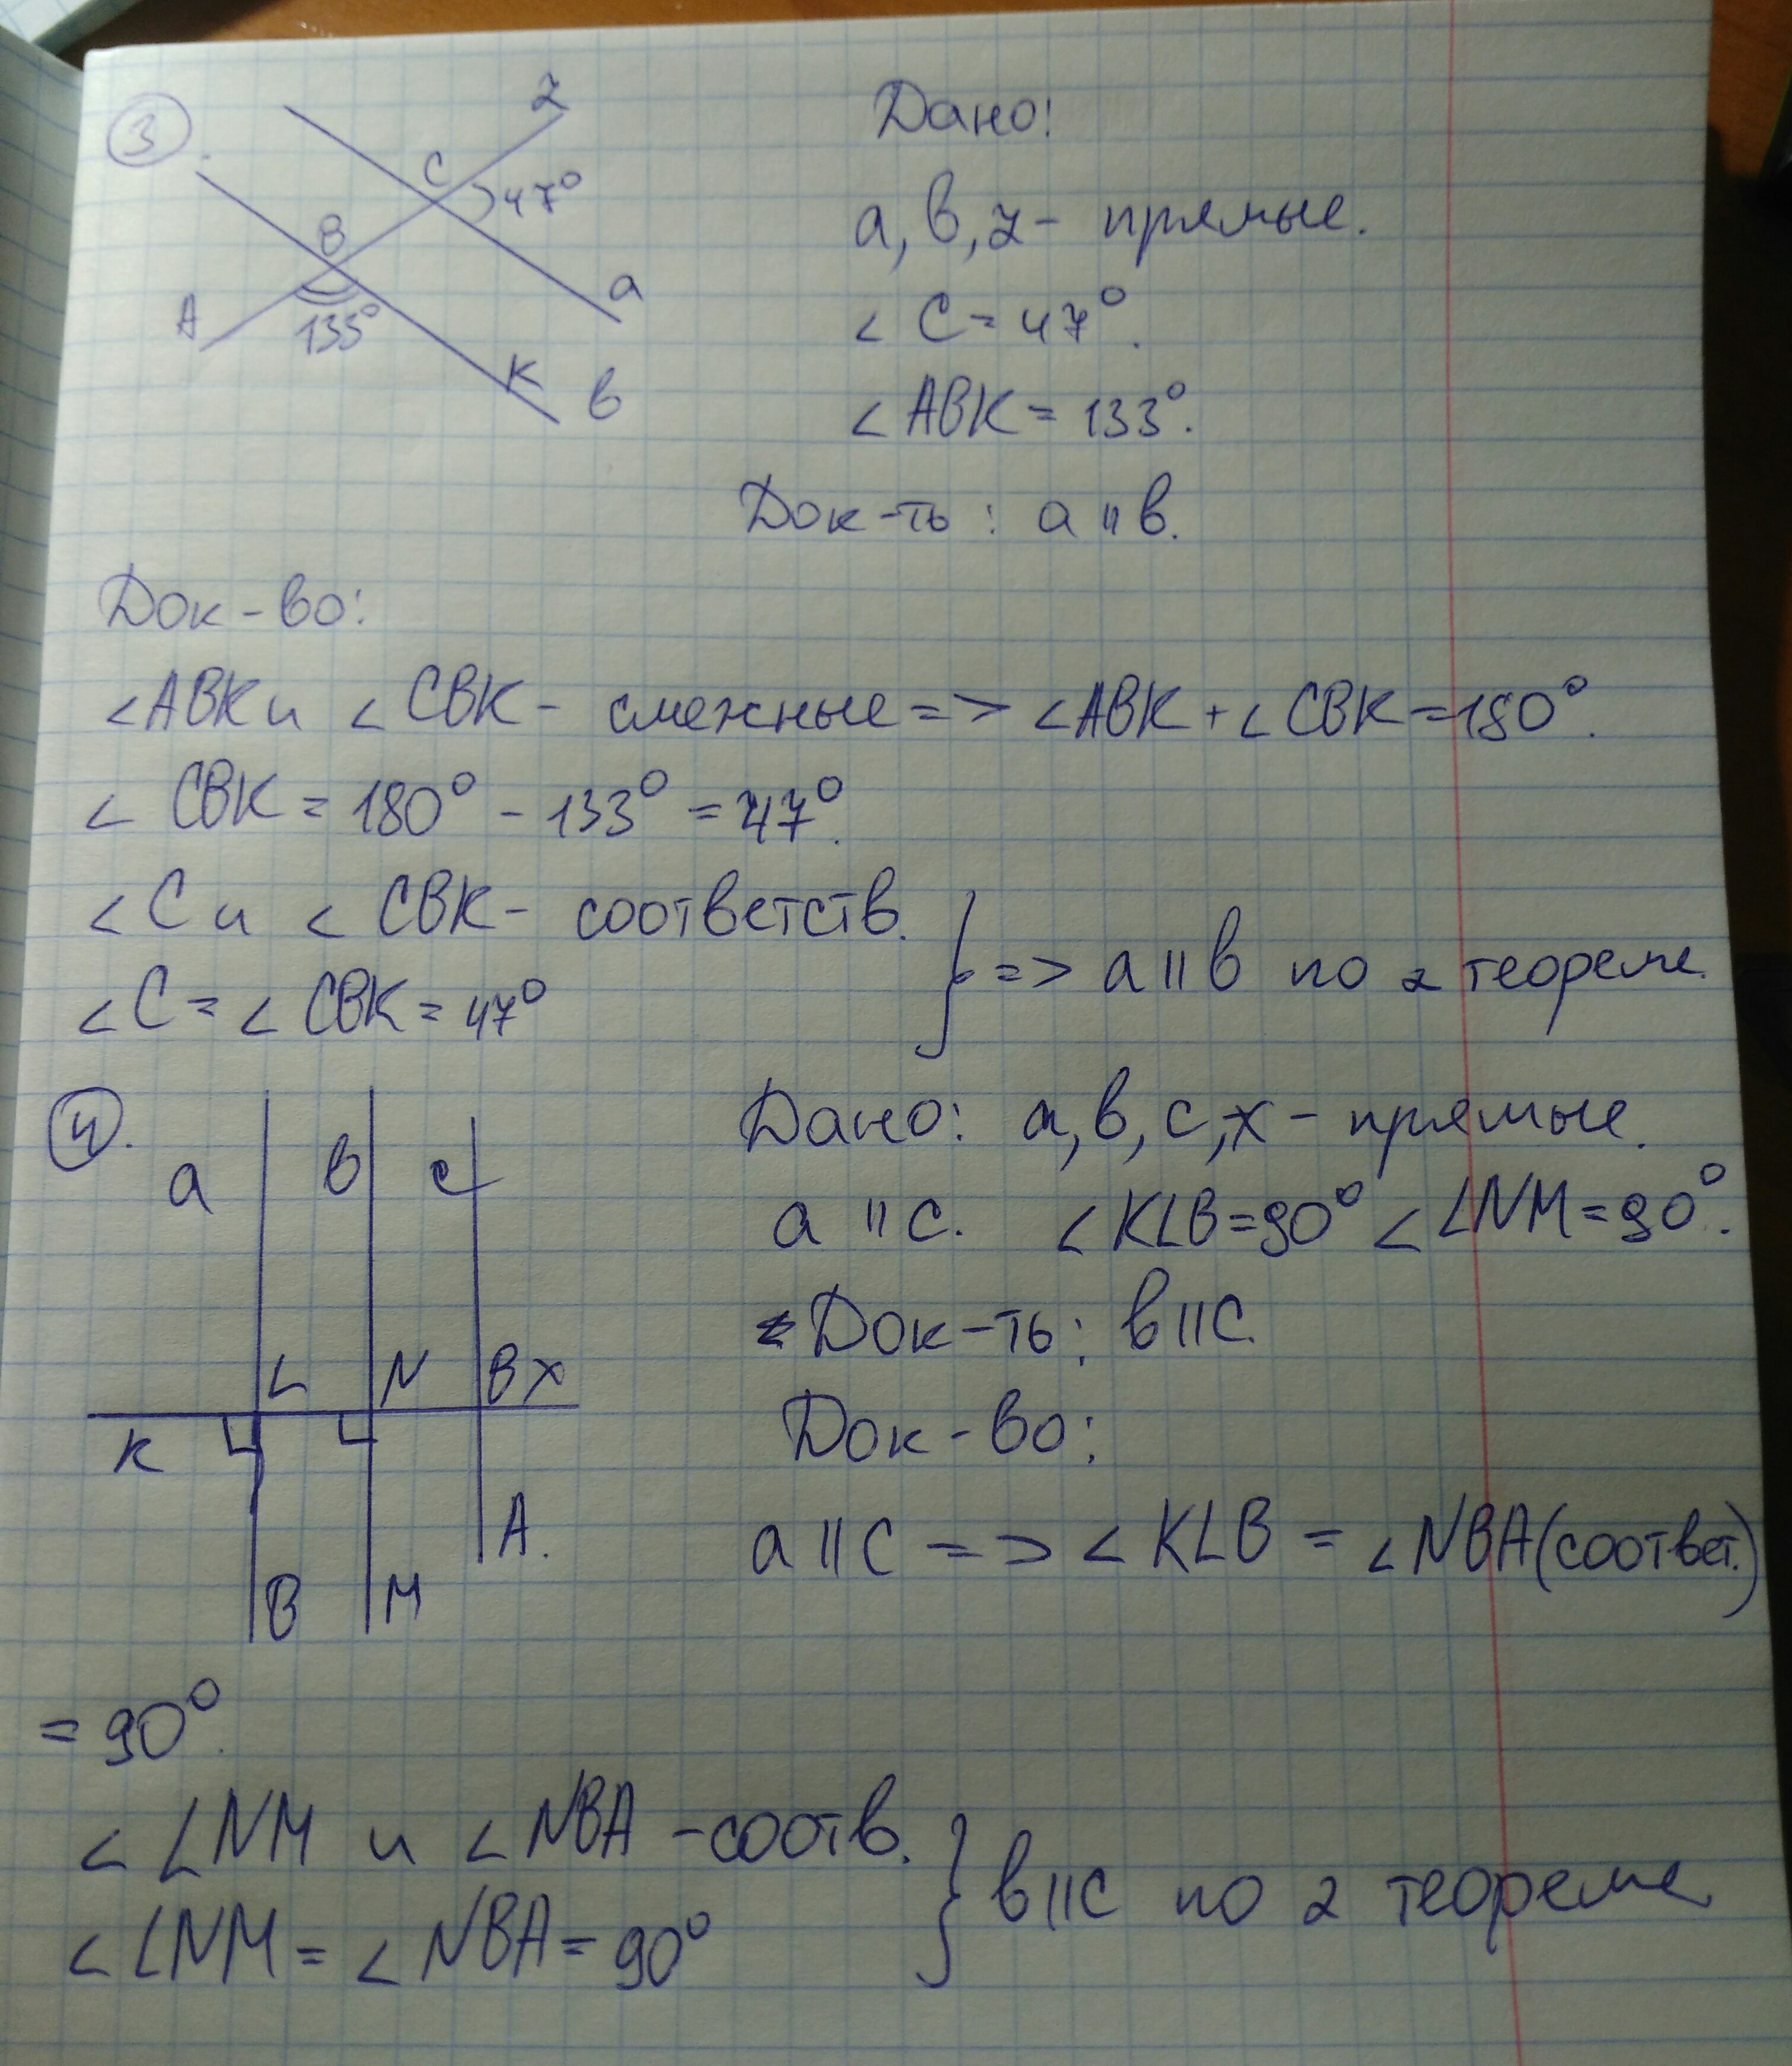 3.
z
C
47°
B
a
A
135°
K
в
Дано:
a, в, z - прямые.
< C = 47°.
< ABK = 133°.
Док-ть: a || в.
Док-во:
<ABK и <CBK - смежные => <ABK + <CBK = 180°.
< CBK = 180° - 133° = 47°.
< C и < CBK - соответств.
< C = < CBK = 47°
=> a || в по 2 теореме.
4.
a
в
c
L
N
B x
K
A.
B
M
Дано: a, в, c, x - прямые.
a || c. < KLB = 90° < LNM = 90°.
Док-ть: в || c
Док-во:
a || c => < KLB = < NBA (соответ.)
= 90°.
< LNM и < NBA - соотв.
< LNM = < NBA = 90°
в || c по 2 теореме